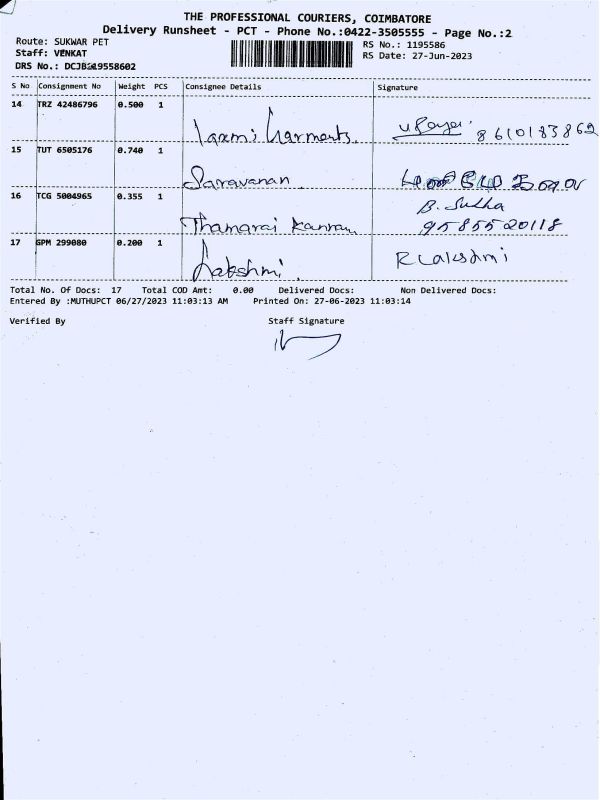 THE PROFESSIONAL COURIERS, COIMBATORE
Delivery Runsheet - PCT - Phone No.:0422-3505555 - Page No.:2
Route: SUKWAR PET
RS No.: 1195586
Staff: VENKAT
RS Date: 27-Jun-2023
DRS No.:
S No Consignment No Weight PCS Consignee Details Signature
14 TRZ 42486796 0.500 1
Laxmi Garments 8610183862
15 TUT 6505176 0.740 1
Saravanan
16 TCG 5004965 0.355 1 B. Sudha
Thamarai Kannan 9585520118
17 GPM 299080 0.200 1
Lakshmi
Total No. Of Docs: 17 Total COD Amt: 0.00 Delivered Docs: Non Delivered Docs:
Entered By :MUTHUPCT 06/27/2023 11:03:13 AM Printed On: 27-06-2023 11:03:14
Verified By Staff Signature